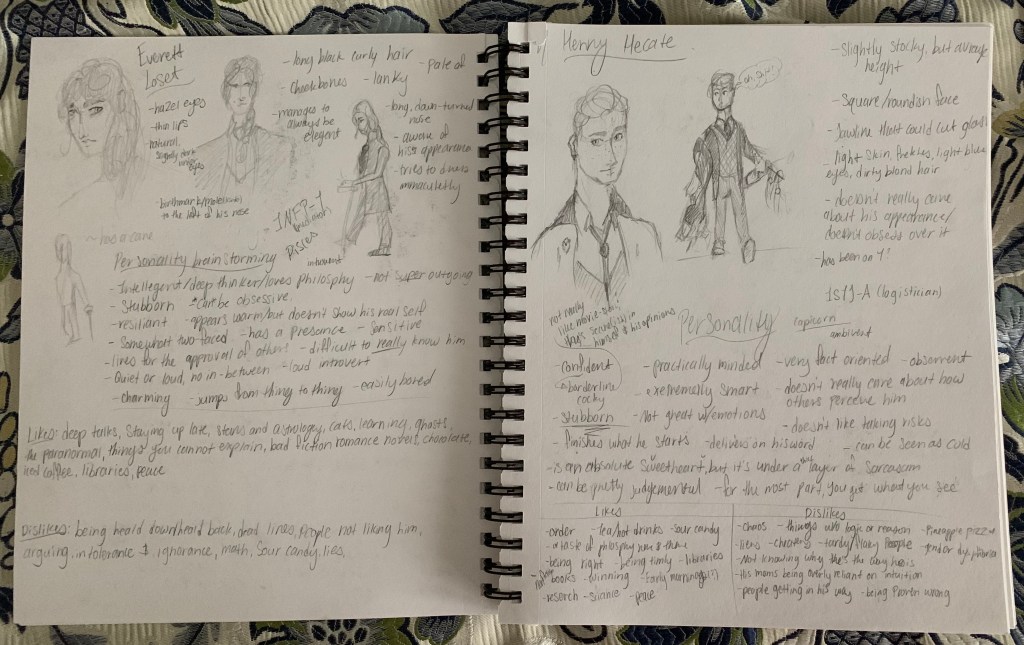 Everett
Loset
- hazel eyes
- thin lips
- natural,
slightly dark
under
eyes
- long black curly hair
- Cheekbones
- lanky
- manages to
always be
elegant
- long, down-turned
nose
- aware of
his appearance
- tries to dress
immaculetly
to the left of his nose
INFP-T
mediator
Pisces
introvert
~ has a cane
Personality brainstorming
- Intellegent/deep thinker/loves Philosphy - not super outgoing
- Stubborn - Can be obsessive
- resiliant - appears warm/but doesn't show his real self
- Somewhat two-faced - has a presence - Sensitive
- lives for the approval of others - difficult to really know him
- Quiet or loud, no in-between - loud introvert
- charming - Jumps from thing to thing - easily bored
Likes: deep talks, Staying up late, stars and astrology, cats, learning, ghosts,
the paranormal, things you cannot explain, bad fiction romance novels, chocolate,
iced coffee, libraries, peace
Dislikes: being heald down/heald back, dead lines, People not liking him,
arguing, intolerance, ignorance, math, Sour candy, lies,
Henry Hecate
oh, great
- slightly stocky, but average
height
- Square/roundish face
- Jawline that could cut glass
- light skin, freckles, light blue
eyes, dirty blond hair
- doesn't really care
about his appearance/
doesn't obsess over it
- has been on T
ISTJ-A (logistician)
Capicorn
ambivert
not really
himself & his opinions
Personality
- confident
- borderline
cocky
- practically minded - very fact oriented - observent
- extremely smart - doesn't really care about how
others perceive him
- Stubborn - Not great w/emotions - doesn't like taking risks
- finishes what he starts - delivers on his word - can be seen as cold
- is an absolute sweetheart, but it's under a layer of Sarcasam
- can be pretty judgemental - for the most part, you get what you see
Likes
- order - tea/hot drinks - Sour candy
- a taste of philosphy here & there
- being right - being timely - libraries
- books - winning - Early mornings(!?)
- reserch - sciance - peace
Dislikes
- chaos - things w/o logic or reason - Pineapple pizza
- liers - cheaters - tardy/flaky People
- Not knowing why he's the way he is
- His moms being overly reliant on intuition
- people getting in his way - being Proven wrong